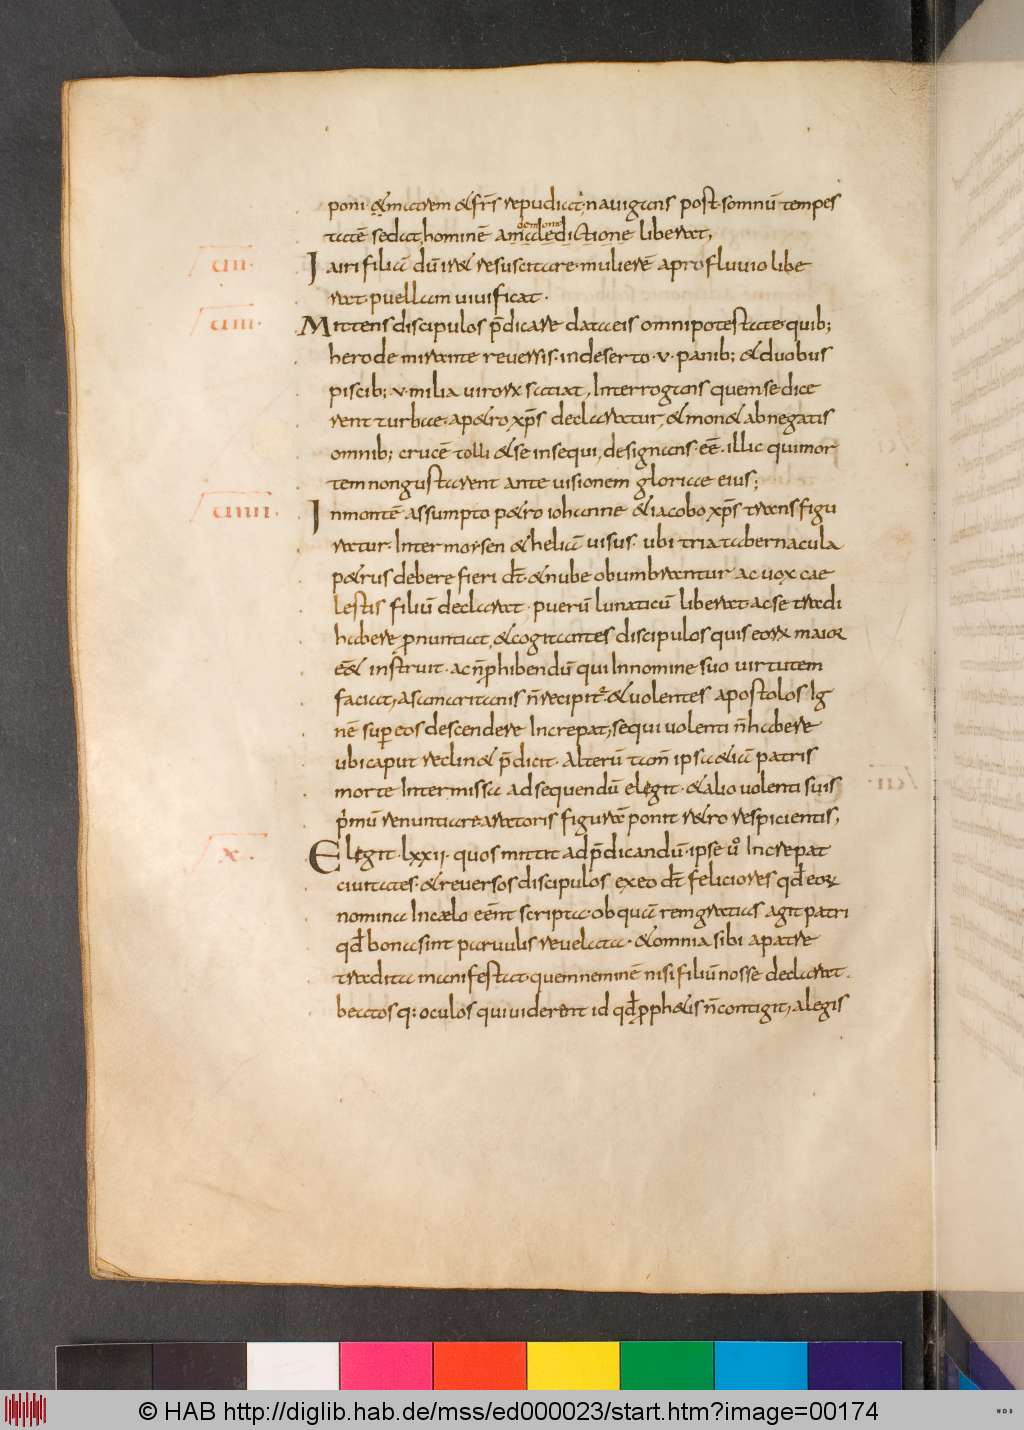 poni & matrem & frs̄ repudiat, navigans post somnū tempes
tatē sedat, hominē a maledictione liberat,
demone
vii. Iairi filiā dū ir& resuscitare mulierē a profluvio libe
rat puellam vivificat.
viii. Mittens discipulos p̄dicare data eis omni potestate quib;
herode mirante reversis. in deserto .v. panib; & duobus
piscib; .v. milia virorx satiat, Interrogans quem se dice
rent turbae. a p&ro xp̄s declaratur, & mon& abnegatis
omnib; crucē tolli & se insequi, designans eē. illic qui mor
tem non gustarent ante visionem gloriae eius;
viiii. In montē assumpto p&ro iohanne & iacobo xp̄s transfigu
ratur. Inter moysen & heliā visus. ubi tria tabernacula
p&rus debere fieri dt̄. & nube obumbrantur ac vox cae
lestis filiū declarat. puerū lunaticū liberat ac se tradi
habere p̄nuntiat, & cogitantes discipulos quis eorx maior
ēē& instruit. ac n̄ phibendū qui In nomine suo virtutem
faciat, a samaritanis n̄ recipit~. & volentes apostolos Ig
nē sup eos descendere Increpat, sequi volenti n̄ habere
ubi caput reclin& p̄dicit. Alterū tam̄ ipsa &iā patris
morte Intermissa ad sequendū elegit. & alio volenti suis
p̄mū renuntiare aratoris figurā ponit r&ro respicientis,
x. Elegit .lxxii. quos mittit ad p̄dicandū. ipse v° Increpat
civitates. & reversos discipulos ex eo dt̄ feliciores qd̄ eorx
nomina In caelo eēnt scripta ob quā rem gratias agit patri
qd̄ bona sint parvulis revelata. & omnia sibi a patre
tradita manifestat quem neminē nisi filiū nosse declarat.
beatos q: oculos qui viderent id qd̄ pph&is n̄ contigit, a legis
© HAB http://diglib.hab.de/mss/ed000023/start.htm?image=00174